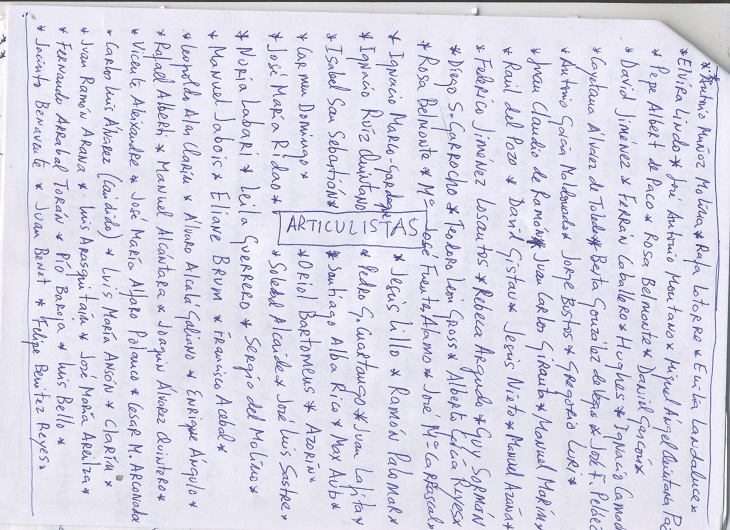 * Antonio Muñoz Molina * Rafa Latorre * Emilia Landaluce *
* Elvira Lindo * José Antonio Montano * Miguel Ángel Quintana Paz
* Pepe Albert de Paco * Rosa Belmonte * David Gascón *
* David Jiménez * Ferrán Caballero * Hughes * Ignacio Camacho
* Cayetana Álvarez de Toledo * Berta González de Vega * José F. Peláez
* Antonio García Maldonado * Jorge Bustos * Gregorio Luri *
* Juan Claudio de Ramón * Juan Carlos Girauta * Manuel Marín *
* Raúl del Pozo * David Gistau * Jesús Nieto * Manuel Azaña *
* Federico Jiménez Losantos * Rebeca Argudo * Guy Sormán
* Diego S. Garrocho * Teodoro León Gross * Alberto García Reyes *
* Rosa Belmonte * Mª José Fuenteálamo * José Mª Carrascal *
* Ignacio Marco-Gardoqui * Jesús Lillo * Ramón Palomar *
* Ignacio Ruíz Quintano * Pedro G. Cuartango * Juan Lafita *
* Isabel San Sebastián * Santiago Alba Rico * Max Aub *
* Carmen Domingo * Oriol Bartomeus * Azorín *
ARTICULISTAS
* José María Ridao * Soledad Alcaide * José Luis Sastre *
* Nuria Labari * Leila Guerrero * Sergio del Molino *
* Manuel Jabois * Eliane Brum * Francisco Acebal *
* Leopoldo Alas Clarín * Álvaro Alcalá Galiano * Enrique Angulo *
* Rafael Alberti * Manuel Alcántara * Joaquín Álvarez Quintero *
* Vicente Aleixandre * José María Alfaro Polanco * Cesar M. Arconada
* Carlos Luis Álvarez (Cándido) * Luis María Ansón * Clarín *
* Juan Ramón Arana * Luis Araquistaín * José María Areilza *
* Fernando Arrabal Terán * Pío Baroja * Luis Bello *
* Jacinto Benavente * Juan Benet * Felipe Benítez Reyes *